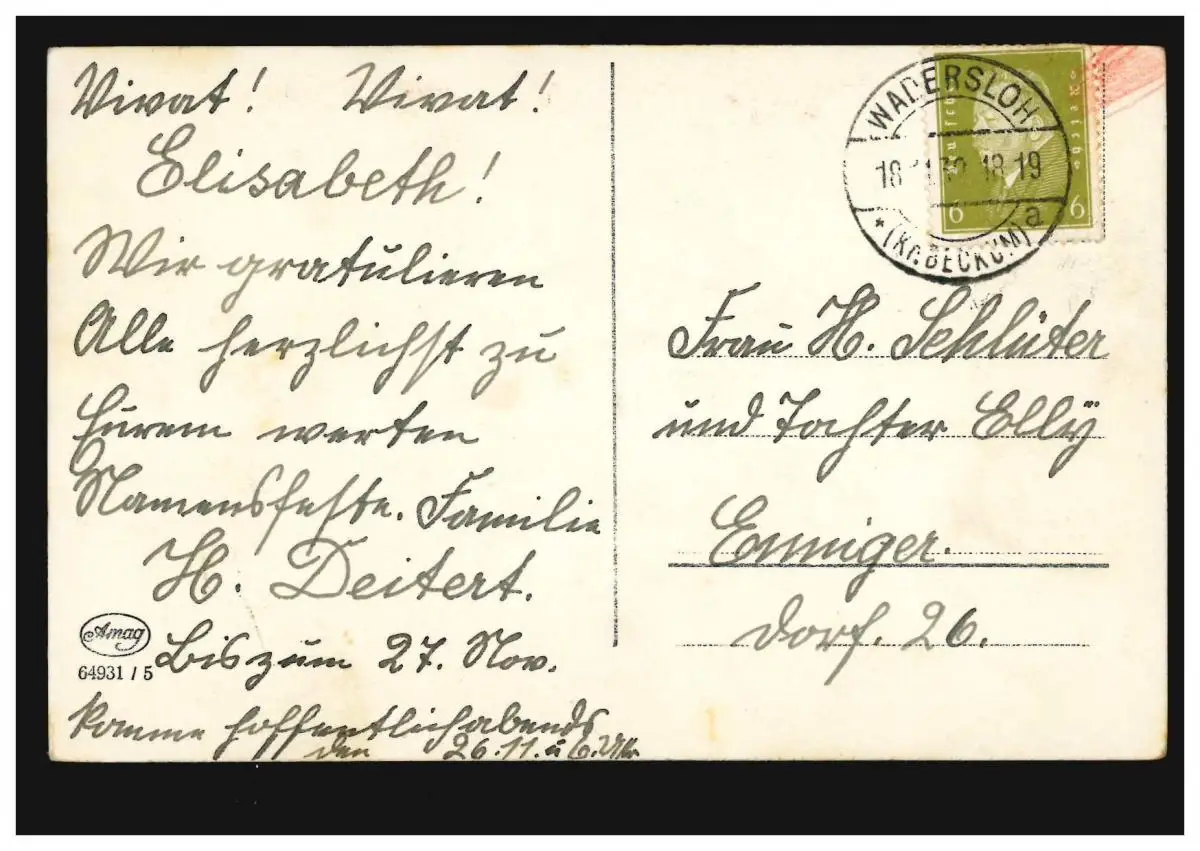 Vivat! Vivat!
Elisabeth!
Wir gratulieren
Alle herzlichst zu
Eurem werten
Namensfeste. Familie
H. Deitert.
Bis zum 27. Nov.
komme hoffentlich abends
den 26.11. u 6. Uhr
Amag
64931 / 5
WADERSLOH
18 18-19
a
* (KR. BECKUM)
6 6
Frau H. Schlüter
und Tochter Elly
Enniger.
Dorf. 26.